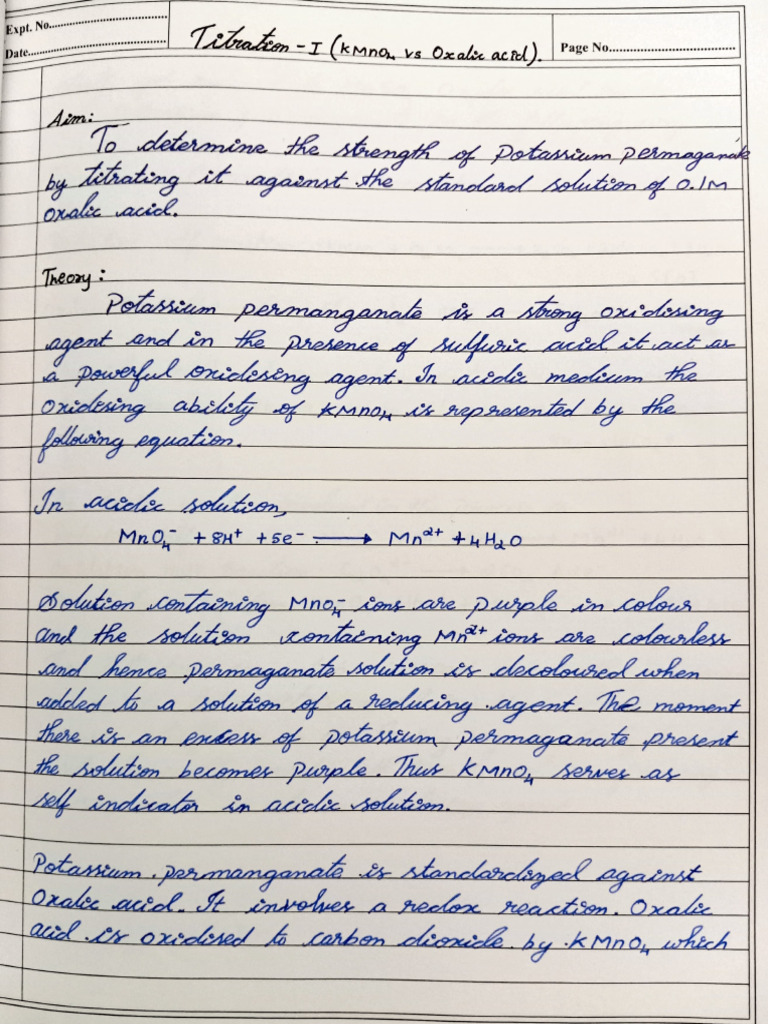 Expt. No.
Titration - I (KMnO₄ vs Oxalic acid).
Page No.
Date.
Aim:
To determine the strength of Potassium permaganate
by titrating it against the standard solution of 0.1M
Oxalic acid.
Theory:
Potassium permanganate is a strong oxidising
agent and in the presence of sulfuric acid it act as
a powerful oxidising agent. In acidic medium the
oxidising ability of KMnO₄ is represented by the
following equation.
In acidic solution,
MnO₄⁻ + 8H⁺ + 5e⁻ ⟶ Mn²⁺ + 4H₂O
Solution containing MnO₄⁻ ions are purple in colour
and the solution containing Mn²⁺ ions are colourless
and hence permaganate solution is decoloured when
added to a solution of a reducing agent. The moment
there is an excess of potassium permaganate present
the solution becomes purple. Thus KMnO₄ serves as
self indicator in acidic solution.
Potassium permanganate is standardized against
Oxalic acid. It involves a redox reaction. Oxalic
acid is oxidised to carbon dioxide by KMnO₄ which